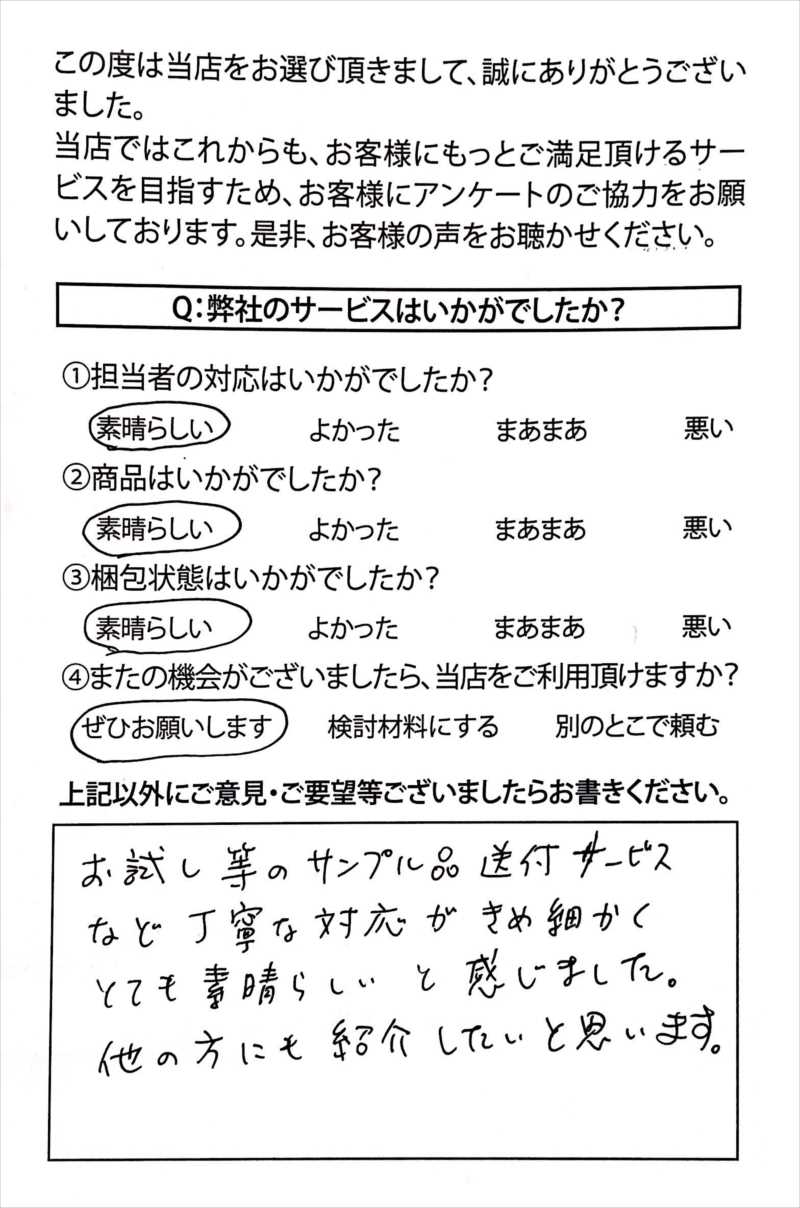 この度は当店をお選び頂きまして、誠にありがとうござい
ました。
当店ではこれからも、お客様にもっとご満足頂けるサー
ビスを目指すため、お客様にアンケートのご協力をお願
いしております。是非、お客様の声をお聴かせください。
Q:弊社のサービスはいかがでしたか?
①担当者の対応はいかがでしたか?
素晴らしい よかった まあまあ 悪い
②商品はいかがでしたか?
素晴らしい よかった まあまあ 悪い
③梱包状態はいかがでしたか?
素晴らしい よかった まあまあ 悪い
④またの機会がございましたら、当店をご利用頂けますか?
ぜひお願いします 検討材料にする 別のとこで頼む
上記以外にご意見・ご要望等ございましたらお書きください。
お試し等のサンプル品送付サービス
など丁寧な対応がきめ細かく
とても素晴らしいと感じました。
他の方にも紹介したいと思います。